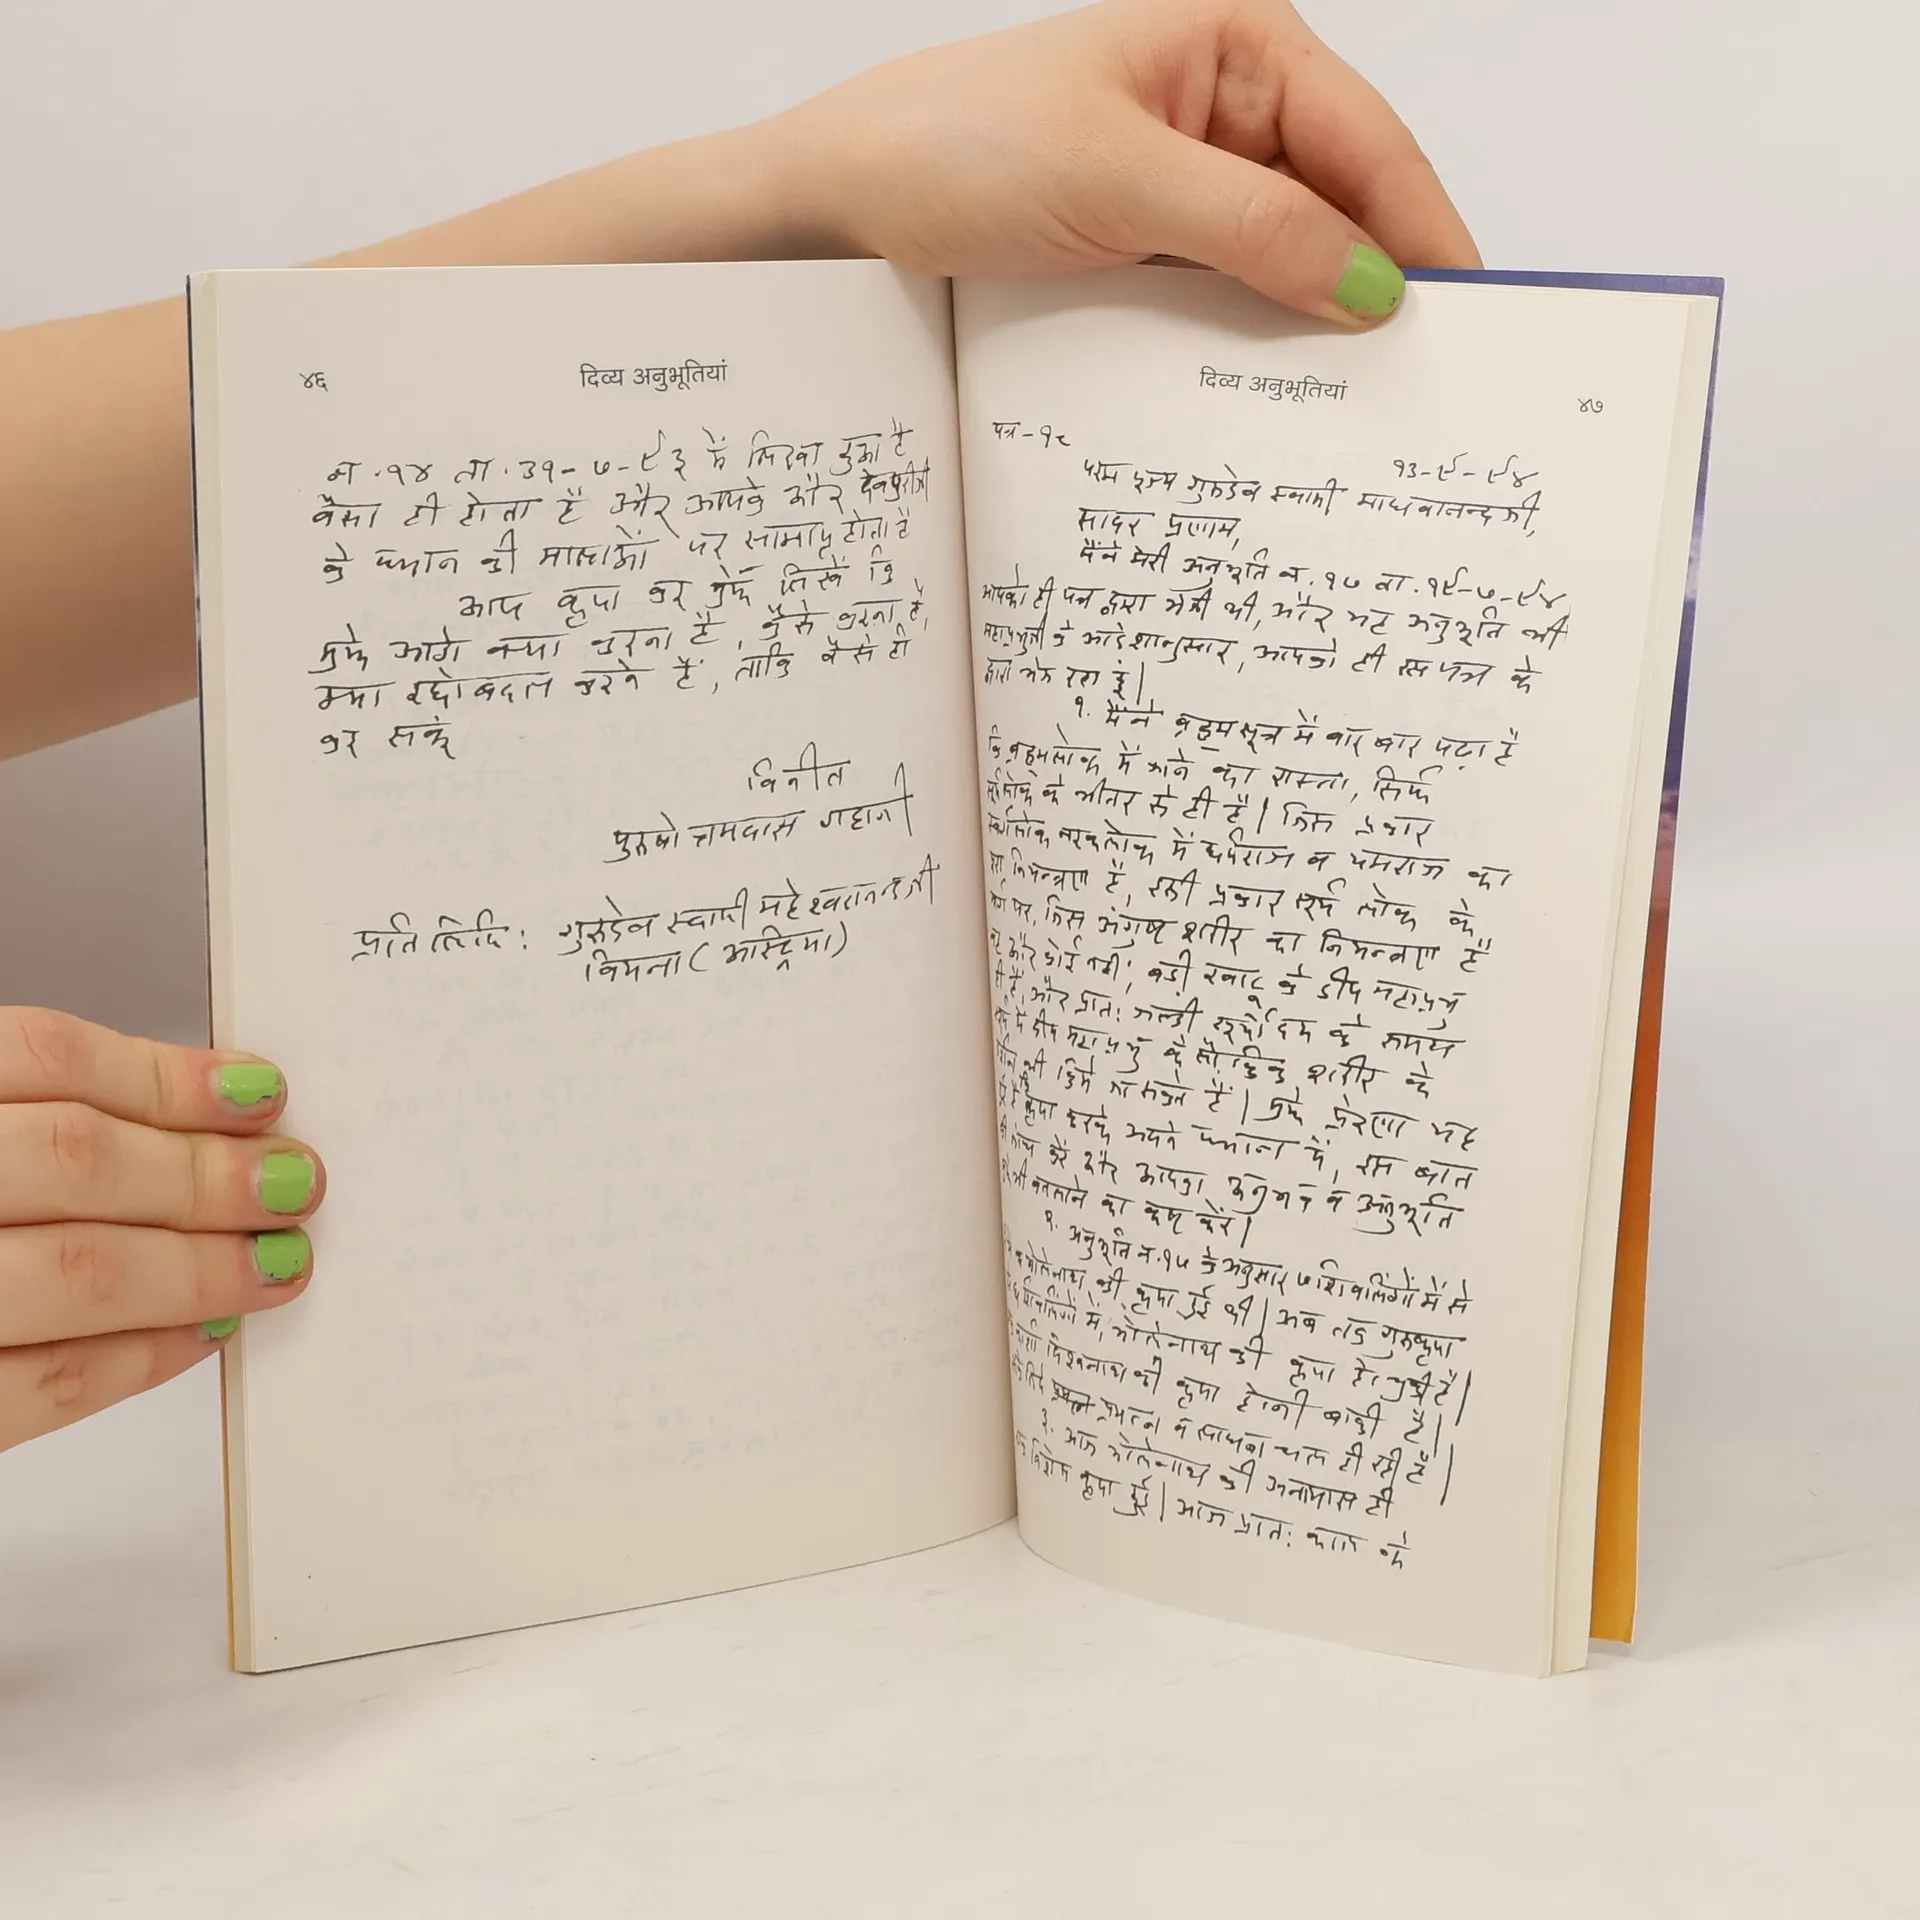 ४६
दिव्य अनुभूतियां
न .१४ ता . ३१-७-९३ में लिखा हुआ है
वैसा ही होता है और आपके और देवपुरीजी
के ध्यान की मालाओं पर समाप्त होता है
आप कृपा कर मुझे लिखें कि
मुझे आगे क्या करना है, कैसे करना है,
क्या रद्दोबदल करने हैं, ताकि वैसे ही
कर सकूं
विनीत
पुरुषोत्तमदास
प्रति लिपि : गुरुदेव स्वामी महेश्वरानन्दजी
वियना (आस्ट्रिया)
दिव्य अनुभूतियां
४७
पत्र-१८
१३-९-९४
परम पूज्य गुरुदेव स्वामी माधवानन्दजी,
सादर प्रणाम,
मैंने मेरी अनुभूति न . १७ ता . १९-७-९४
आपको ही पत्र द्वारा भेजी थी, और यह अनुभूति भी
महाप्रभुजी के आदेशानुसार, आपको ही इस पत्र के
द्वारा भेज रहा हूं|
१. मैंने ब्रह्मसूत्र में बार बार पढ़ा है
कि ब्रह्मलोक में जाने का रास्ता, सिर्फ
सूर्यलोक के भीतर से ही है| जिस प्रकार
स्वर्गलोक नरकलोक में धर्मराज व यमराज का
नियन्त्रण है, इसी प्रकार सूर्य लोक के
पर, जिस अंगुष्ठ शरीर का नियन्त्रण है
और कोई नहीं; बड़ी खाटू के दीप महाप्रभु
ही हैं, और प्रातः जल्दी सूर्योदय के समय
में दीप महाप्रभु के लौकिक शरीर के
भी किये जा सकते हैं| मुझे प्रेरणा यह
है कि कृपा करके अपने ध्यान में, इस बात
की जांच करें और आपका अनुभव व अनुभूति
भी बतलाने का कष्ट करें|
२. अनुभूति न .१७ के अनुसार ७ शिवलिंगों में से
भोलेनाथ की कृपा हुई थी| अब तक गुरुकृपा
शिवलिंगों में, भोलेनाथ की कृपा हो चुकी है|
काशी विश्वनाथ की कृपा होनी बाकी है|
लिये प्रयत्न व साधना चल ही रही है|
३. आज भोलेनाथ की अनायास ही
विशेष कृपा हुई| आज प्रातः काल के